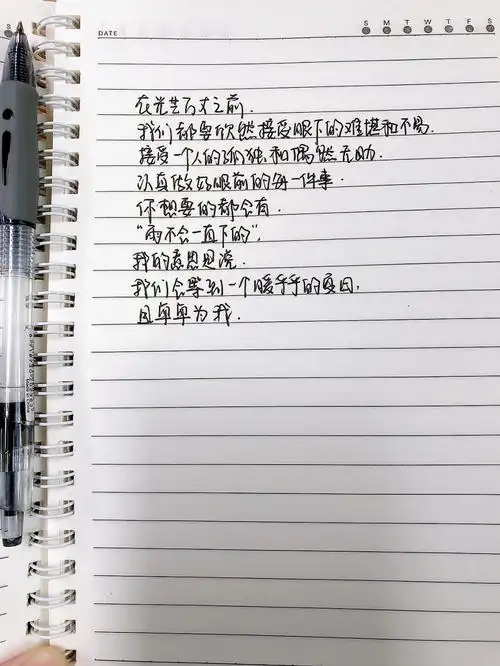 DATE
S M T W T F S
在光芒万丈之前.
我们都要欣然接受眼下的难堪和不易.
接受一个人的孤独和偶然无助.
认真做好眼前的每一件事.
你想要的都会有.
“雨不会一直下的”.
我的意思是说.
我们会等到一个暖乎乎的夏日,
且单单为我.